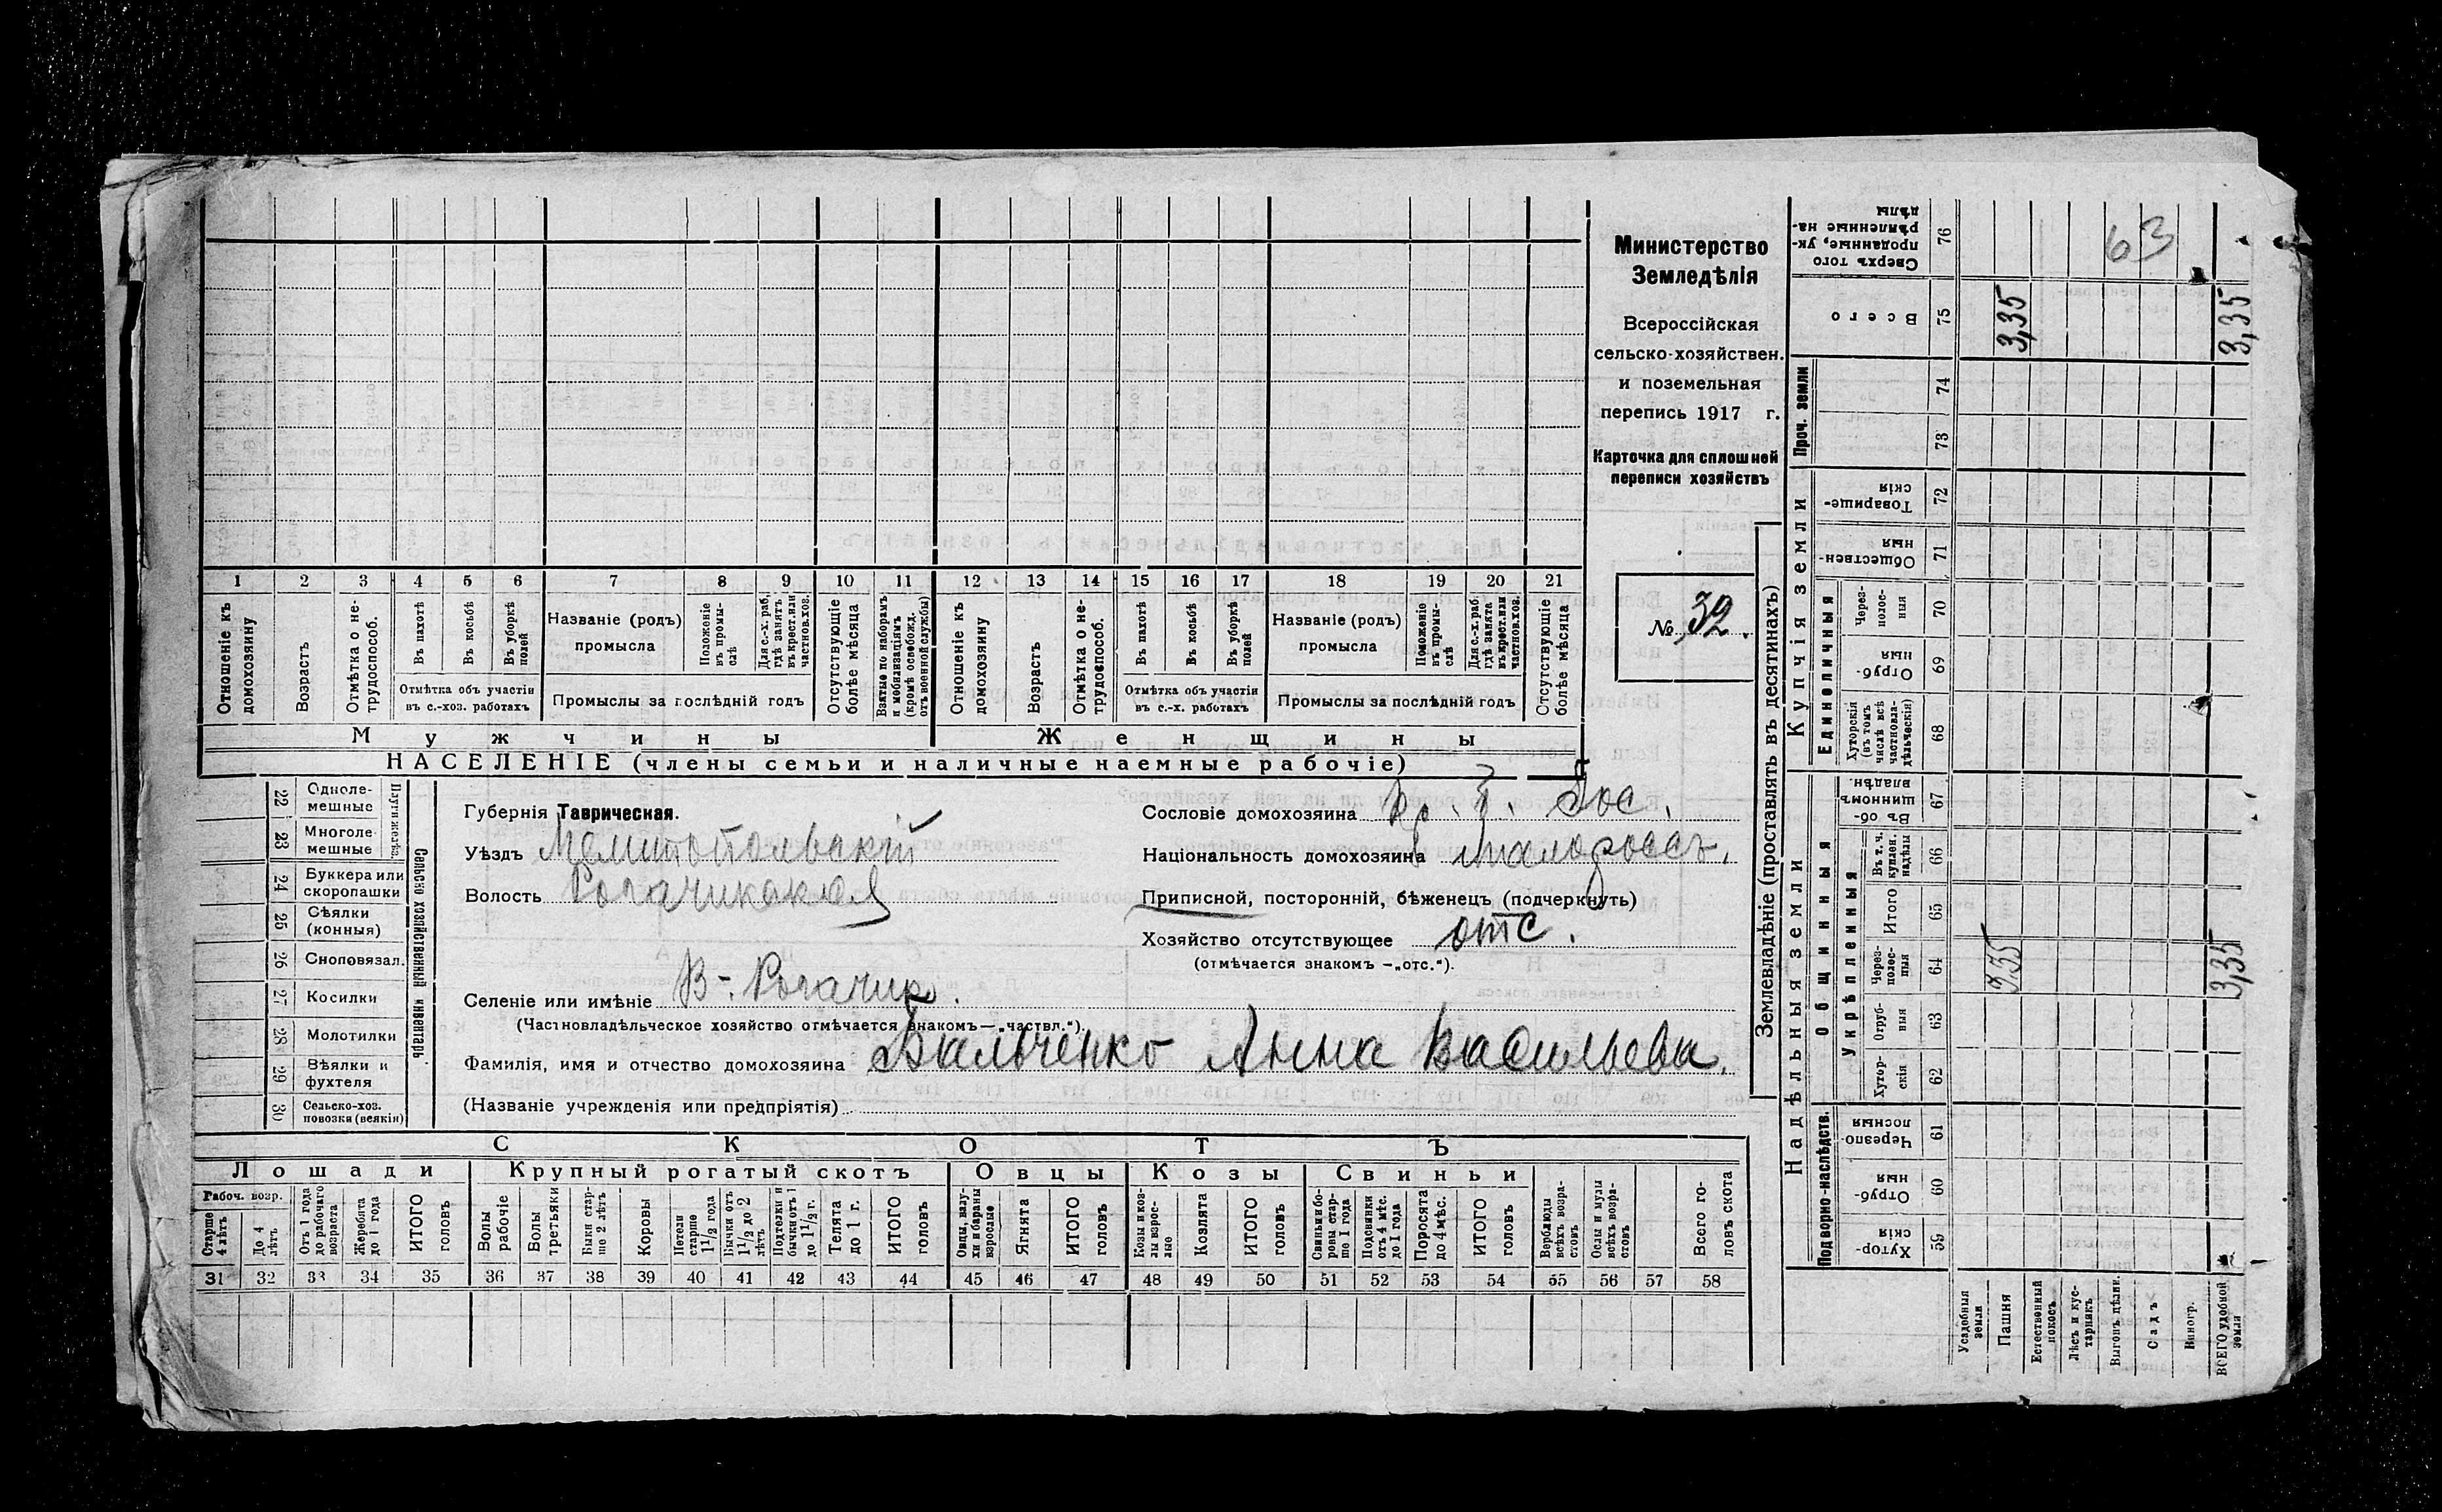 Министерство
Земледѣлія
Всероссійская
сельско-хозяйствен.
и поземельная
перепись 1917 г.
Карточка для сплошной
переписи хозяйствъ
№ 32.
63
1 2 3 4 5 6 7 8 9 10 11 12 13 14 15 16 17 18 19 20 21
Отношеніе къ домохозяину
Возрастъ
Отмѣтка о не-трудоспособ.
Въ пахотѣ
Въ косьбѣ
Въ уборкѣ полей
Отмѣтка объ участіи
въ с.-хоз. работахъ
Названіе (родъ)
промысла
Положеніе въ промы-слѣ
Для с.-х. раб, гдѣ занятъ въ крест. или частнов. хоз.
Промыслы за послѣдній годъ
Отсутствующіе болѣе мѣсяца
Взятые по наборамъ и мобилизаціямъ (кромѣ освобожд. отъ военной службы)
Отношеніе къ домохозяину
Возрастъ
Отмѣтка о не-трудоспособ.
Въ пахотѣ
Въ косьбѣ
Въ уборкѣ полей
Отмѣтка объ участіи
въ с.-х. работахъ
Названіе (родъ)
промысла
Положеніе въ промы-слѣ
Для с.-х. раб. гдѣ занята въ крест. или частнов. хоз.
Промыслы за послѣдній годъ
Отсутствующіе болѣе мѣсяца
Мужчины Женщины
НАСЕЛЕНІЕ (члены семьи и наличные наемные рабочіе)
22 Однолемешные
23 Многолемешные
Плуги желѣз.
24 Буккера или скоропашки
25 Сѣялки (конныя)
26 Сноповязал.
27 Косилки
28 Молотилки
29 Вѣялки и фухтеля
30 Сельско-хоз. повозки (всякія)
Сельско хозяйственный инвентарь
Губернія Таврическая.
Уѣздъ Мелитопольскій
Волость Рогачикская
Селеніе или имѣніе В-. Рогачикъ.
(Частновладѣльческое хозяйство отмѣчается знакомъ—„частвл.“).
Сословіе домохозяина кр. б. Гос.
Національность домохозяина малороссъ.
Приписной, посторонній, бѣженецъ (подчеркнуть)
Хозяйство отсутствующее отс.
(отмѣчается знакомъ —„отс.“).
Фамилія, имя и отчество домохозяина Бальченко Анна Васильева.
(Названіе учрежденія или предпріятія)
СКОТЪ
Лошади Крупный рогатый скотъ Овцы Козы Свиньи
Рабоч. возр.
Старше 4 лѣтъ
До 4 лѣтъ
Отъ 1 года до рабочаго возраста
Жеребята до 1 года
ИТОГО головъ
Волы рабочіе
Волы третьяки
Быки старше 2 лѣтъ
Коровы
Нетели старше 1 1/2 года
Бычки отъ 1 1/2 до 2 лѣтъ
Подтелки и бычки отъ 1 до 1 1/2 г.
Телята до 1 г.
ИТОГО головъ
Овцы, валухи и бараны взрослые
Ягнята
ИТОГО головъ
Козы и козлы взрослые
Козлята
ИТОГО головъ
Свиньи боровы старше 1 года
Подсвинки отъ 4 мѣс. до 1 года
Поросята до 4 мѣс.
ИТОГО головъ
Верблюды всѣхъ возрастовъ
Ослы и мулы всѣхъ возрастовъ
Всего головъ скота
31 32 33 34 35 36 37 38 39 40 41 42 43 44 45 46 47 48 49 50 51 52 53 54 55 56 57 58
Землевладѣніе (проставлять въ десятинахъ)
Надѣльныя земли
Купчія земли
Проч. земли
Подворно-наслѣдств.
Общинныя
Укрѣпленныя
Единоличныя
Хутор-скія 59
Отруб-ныя 60
Черезпо-лосныя 61
Хутор-скія 62
Отруб-ныя 63
Через-полос-ныя 64 3,35 3,35
Итого 65
Въ т. ч. куплен. надѣлы 66
Въ об-щинномъ владѣн. 67
Хуторскія (въ томъ числѣ всѣ частновла-дѣльческія) 68
Отруб-ныя 69
Через-полос-ныя 70
Обществен-ныя 71
Товарище-скія 72
73
74
Всего 75 3,35 3,35
Сверхъ того проданные, ук-рѣпленные на-дѣлы 76
Усадебныя земли
Пашня
Естественный покосъ
Лѣсъ и кус-тарникъ
Выгонъ цѣлин.
Садъ
Виногр.
ВСЕГО удобной земли